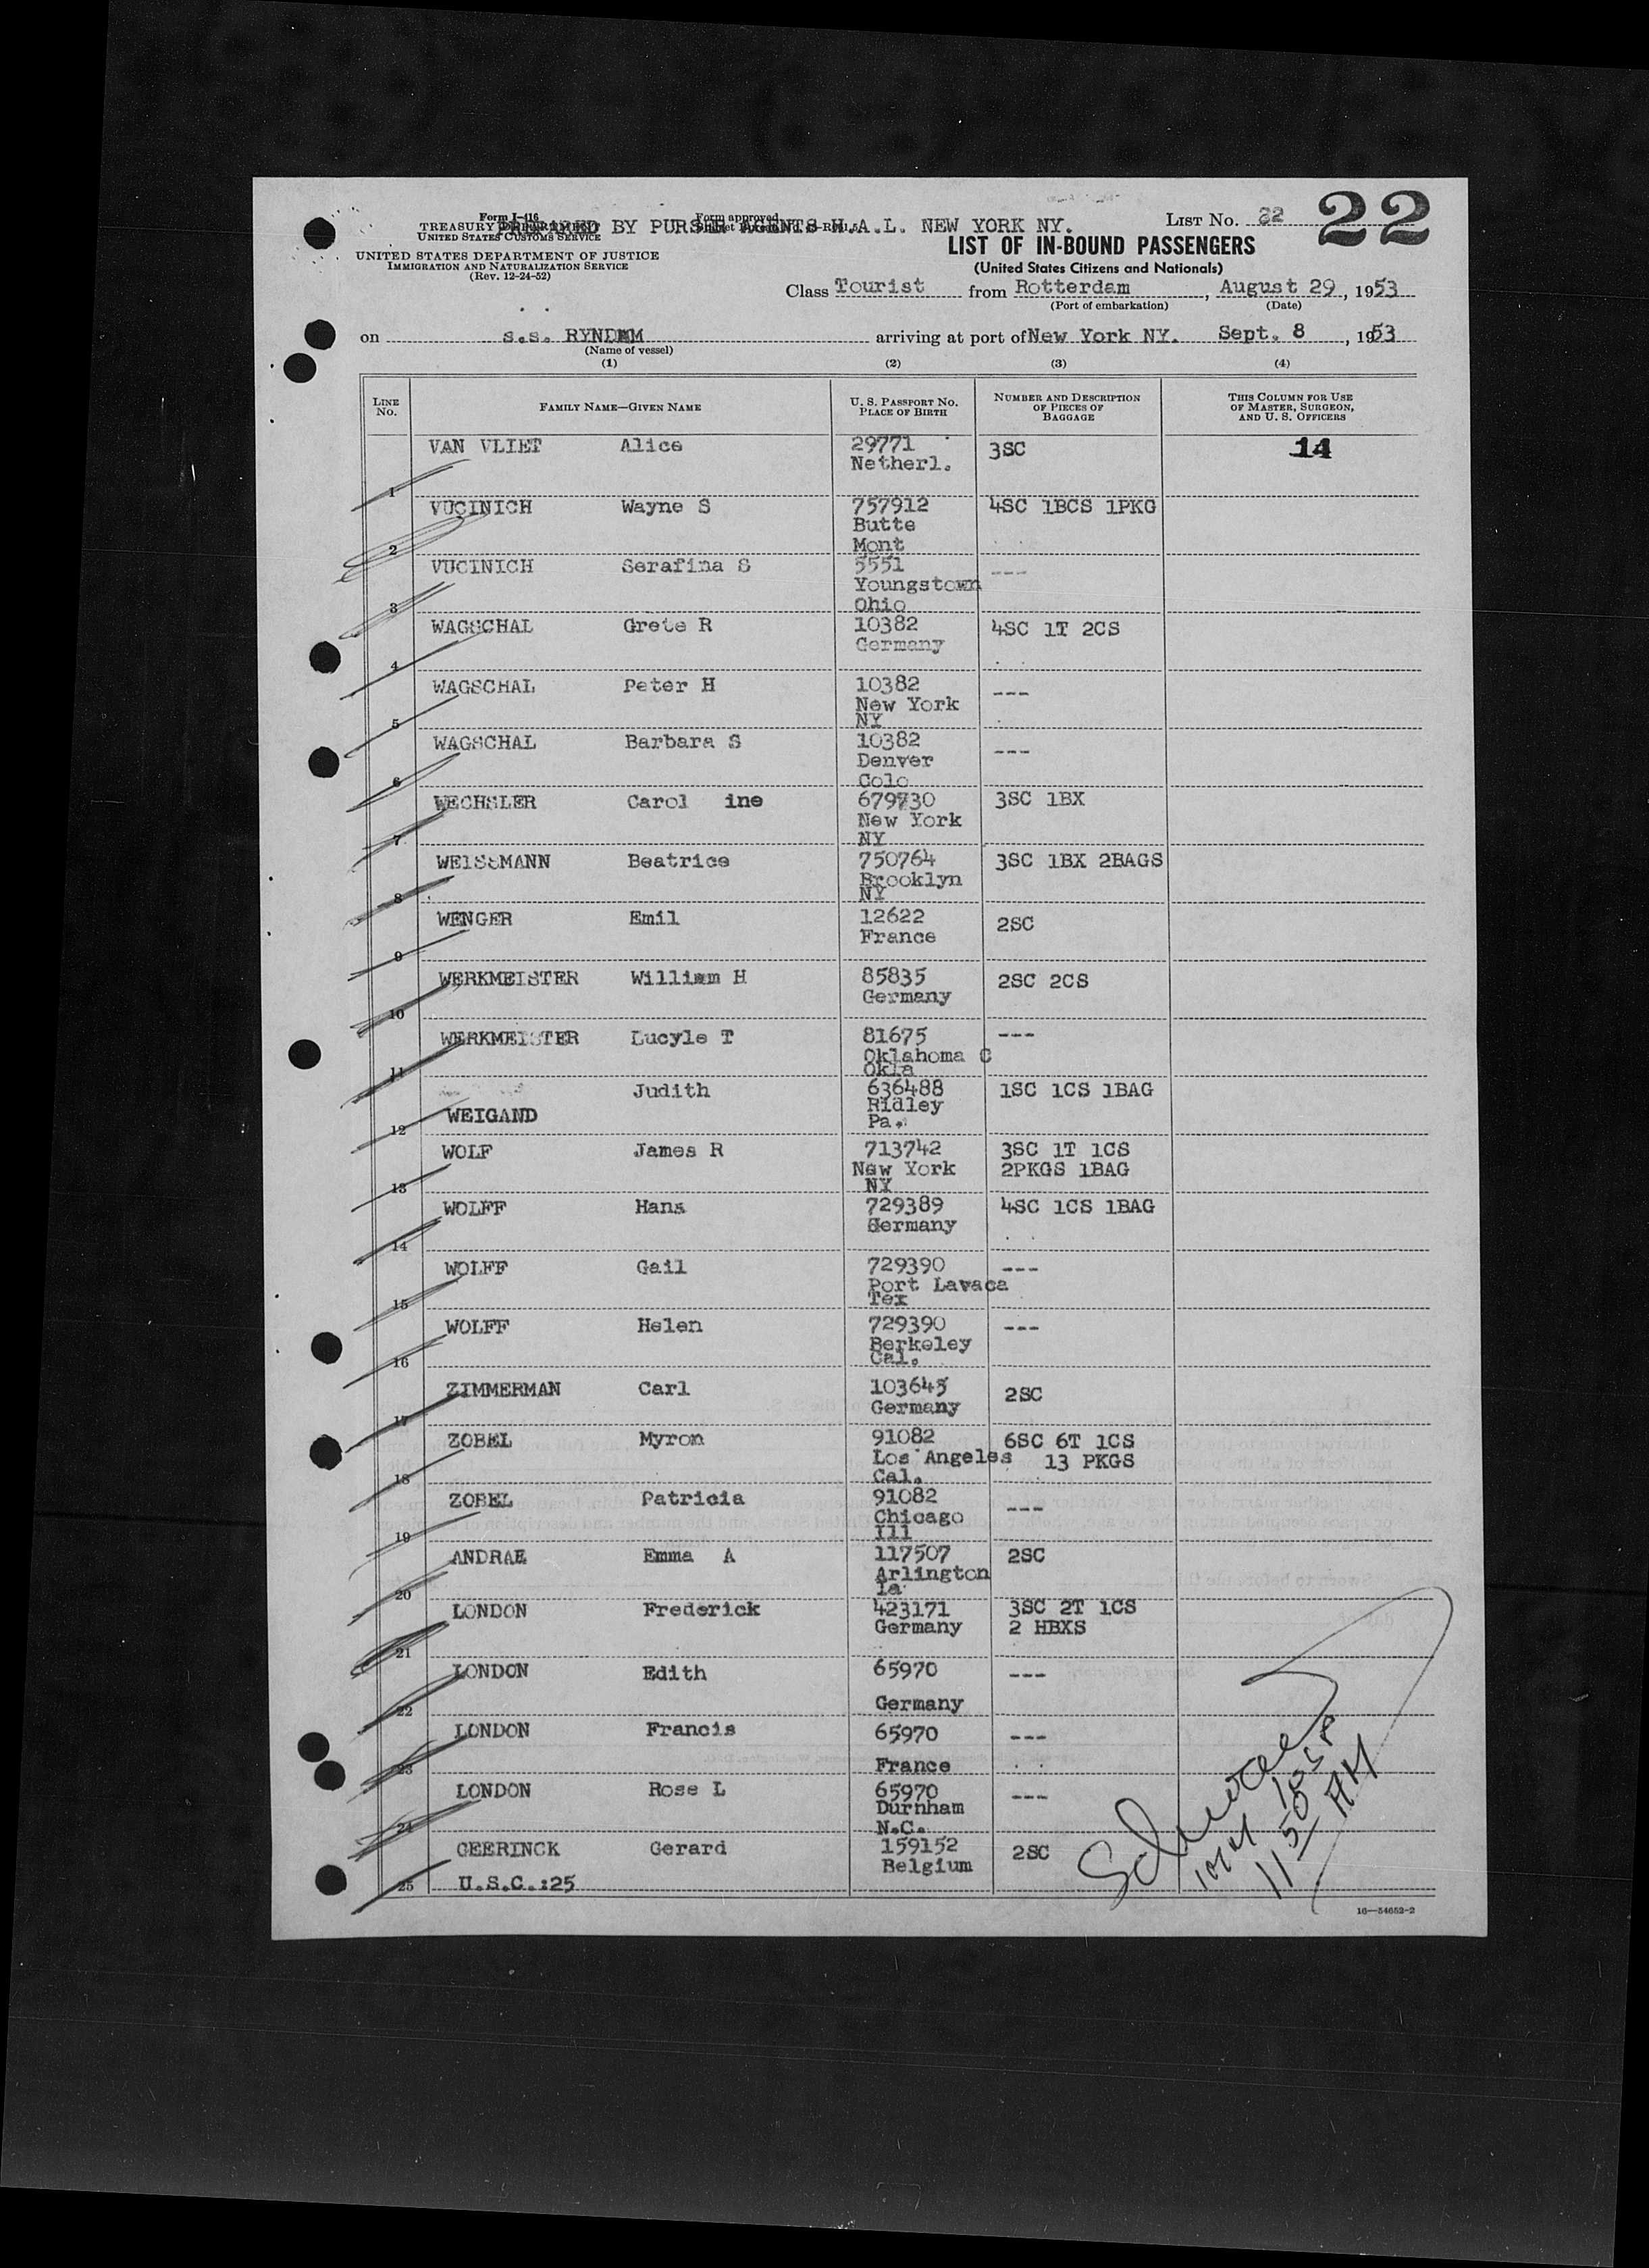 Form I-416
TREASURY DEPARTMENT
UNITED STATES CUSTOMS SERVICE
Form approved
PREPARED BY PURSER AGENTS H.A.L. NEW YORK NY.
LIST No. 22
22
UNITED STATES DEPARTMENT OF JUSTICE
IMMIGRATION AND NATURALIZATION SERVICE
(Rev. 12-24-52)
LIST OF IN-BOUND PASSENGERS
(United States Citizens and Nationals)
Class Tourist from Rotterdam, August 29, 1953
(Port of embarkation) (Date)
on s.s. RYNDAM arriving at port of New York NY. Sept. 8, 1953
(Name of vessel)
(1) (2) (3) (4)
LINE No. FAMILY NAME—GIVEN NAME U. S. PASSPORT No. PLACE OF BIRTH NUMBER AND DESCRIPTION OF PIECES OF BAGGAGE THIS COLUMN FOR USE OF MASTER, SURGEON, AND U. S. OFFICERS
VAN VLIET Alice 29771 3SC 14
Netherl.
1
VUCINICH Wayne S 757912 4SC 1BCS 1PKG
Butte
2 Mont
VUCINICH Serafina S 5551 ---
Youngstown
3 Ohio
WAGSCHAL Grete R 10382 4SC 1T 2CS
Germany
4
WAGSCHAL Peter H 10382 ---
New York
5 NY
WAGSCHAL Barbara S 10382 ---
Denver
6 Colo
WECHSLER Carol ine 679730 3SC 1BX
New York
7 NY
WEISSMANN Beatrice 750764 3SC 1BX 2BAGS
Brooklyn
8 NY
WENGER Emil 12622 2SC
France
9
WERKMEISTER William H 85835 2SC 2CS
Germany
10
WERKMEISTER Lucyle T 81675 ---
Oklahoma C
11 Okla
Judith 636488 1SC 1CS 1BAG
WEIGAND Ridley
12 Pa.
WOLF James R 713742 3SC 1T 1CS
New York 2PKGS 1BAG
13 NY
WOLFF Hans 729389 4SC 1CS 1BAG
Germany
14
WOLFF Gail 729390 ---
Port Lavaca
15 Tex
WOLFF Helen 729390 ---
Berkeley
16 Cal.
ZIMMERMAN Carl 103645 2SC
Germany
17
ZOBEL Myron 91082 6SC 6T 1CS
Los Angeles 13 PKGS
18 Cal.
ZOBEL Patricia 91082 ---
Chicago
19 Ill
ANDRAE Emma A 117507 2SC
Arlington
20 Ia
LONDON Frederick 423171 3SC 2T 1CS
Germany 2 HBXS
21
LONDON Edith 65970 ---
22 Germany
LONDON Francis 65970 ---
23 France
LONDON Rose L 65970 ---
Durnham
24 N.C.
GEERINCK Gerard 159152 2SC
Belgium
25 U.S.C.:25
11 50 AM
16—54652-2